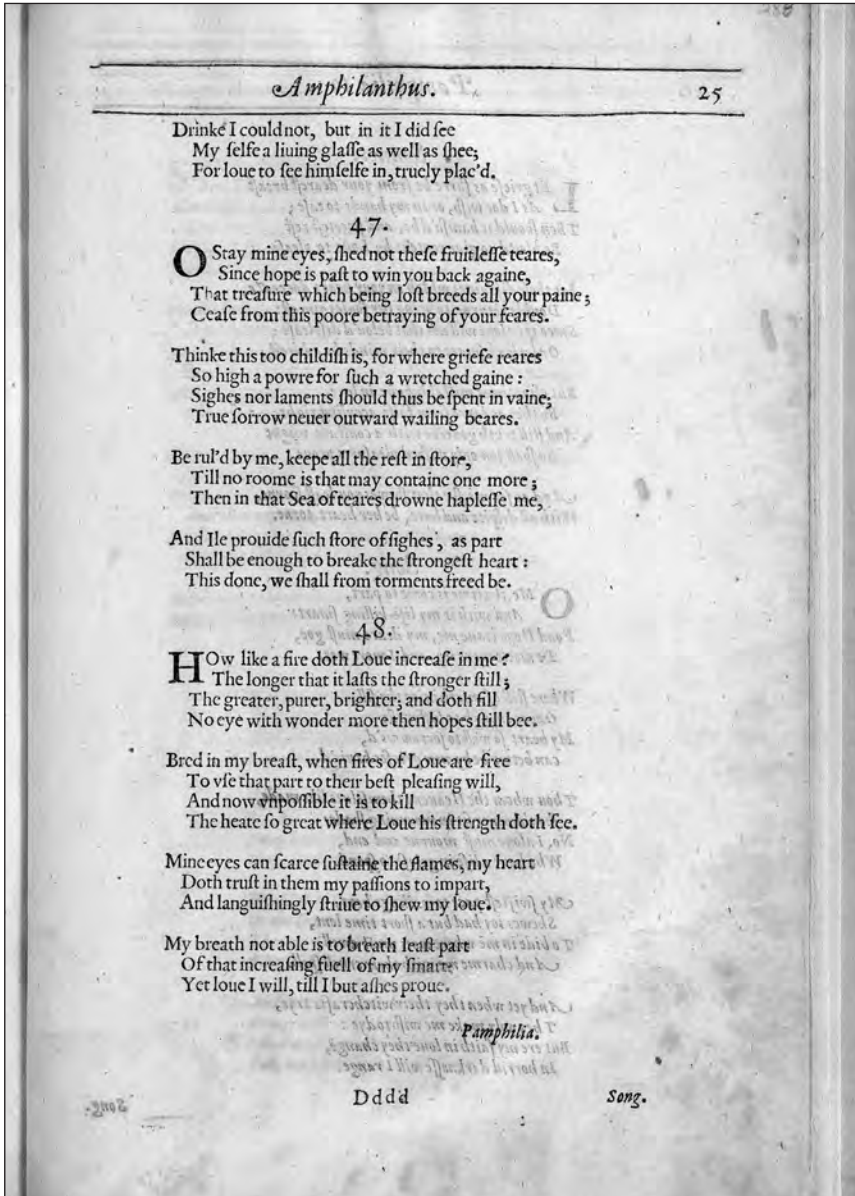 Amphilanthus. 25
Drinke I could not, but in it I did ſee
My ſelfe a liuing glaſſe as well as ſhee;
For loue to ſee himſelfe in, truely plac'd.
47.
O Stay mine eyes, ſhed not theſe fruitleſſe teares,
Since hope is paſt to win you back againe,
That treaſure which being loſt breeds all your paine;
Ceaſe from this poore betraying of your feares.
Thinke this too childiſh is, for where griefe reares
So high a powre for ſuch a wretched gaine:
Sighes nor laments ſhould thus be ſpent in vaine;
True ſorrow neuer outward wailing beares.
Be rul'd by me, keepe all the reſt in ſtore,
Till no roome is that may containe one more;
Then in that Sea of teares drowne hapleſſe me,
And Ile prouide ſuch ſtore of ſighes, as part
Shall be enough to breake the ſtrongeſt heart:
This done, we ſhall from torments freed be.
48.
HOw like a fire doth Loue increaſe in me?
The longer that it laſts the ſtronger ſtill;
The greater, purer, brighter; and doth fill
No eye with wonder more then hopes ſtill bee.
Bred in my breaſt, when fires of Loue are free
To vſe that part to their beſt pleaſing will,
And now vnpoſſible it is to kill
The heate ſo great where Loue his ſtrength doth ſee.
Mine eyes can ſcarce ſuſtaine the flames, my heart
Doth truſt in them my paſſions to impart,
And languiſhingly ſtriue to ſhew my loue.
My breath not able is to breath leaſt part
Of that increaſing fuell of my ſmart;
Yet loue I will, till I but aſhes proue.
Pamphilia.
Dddd Song.